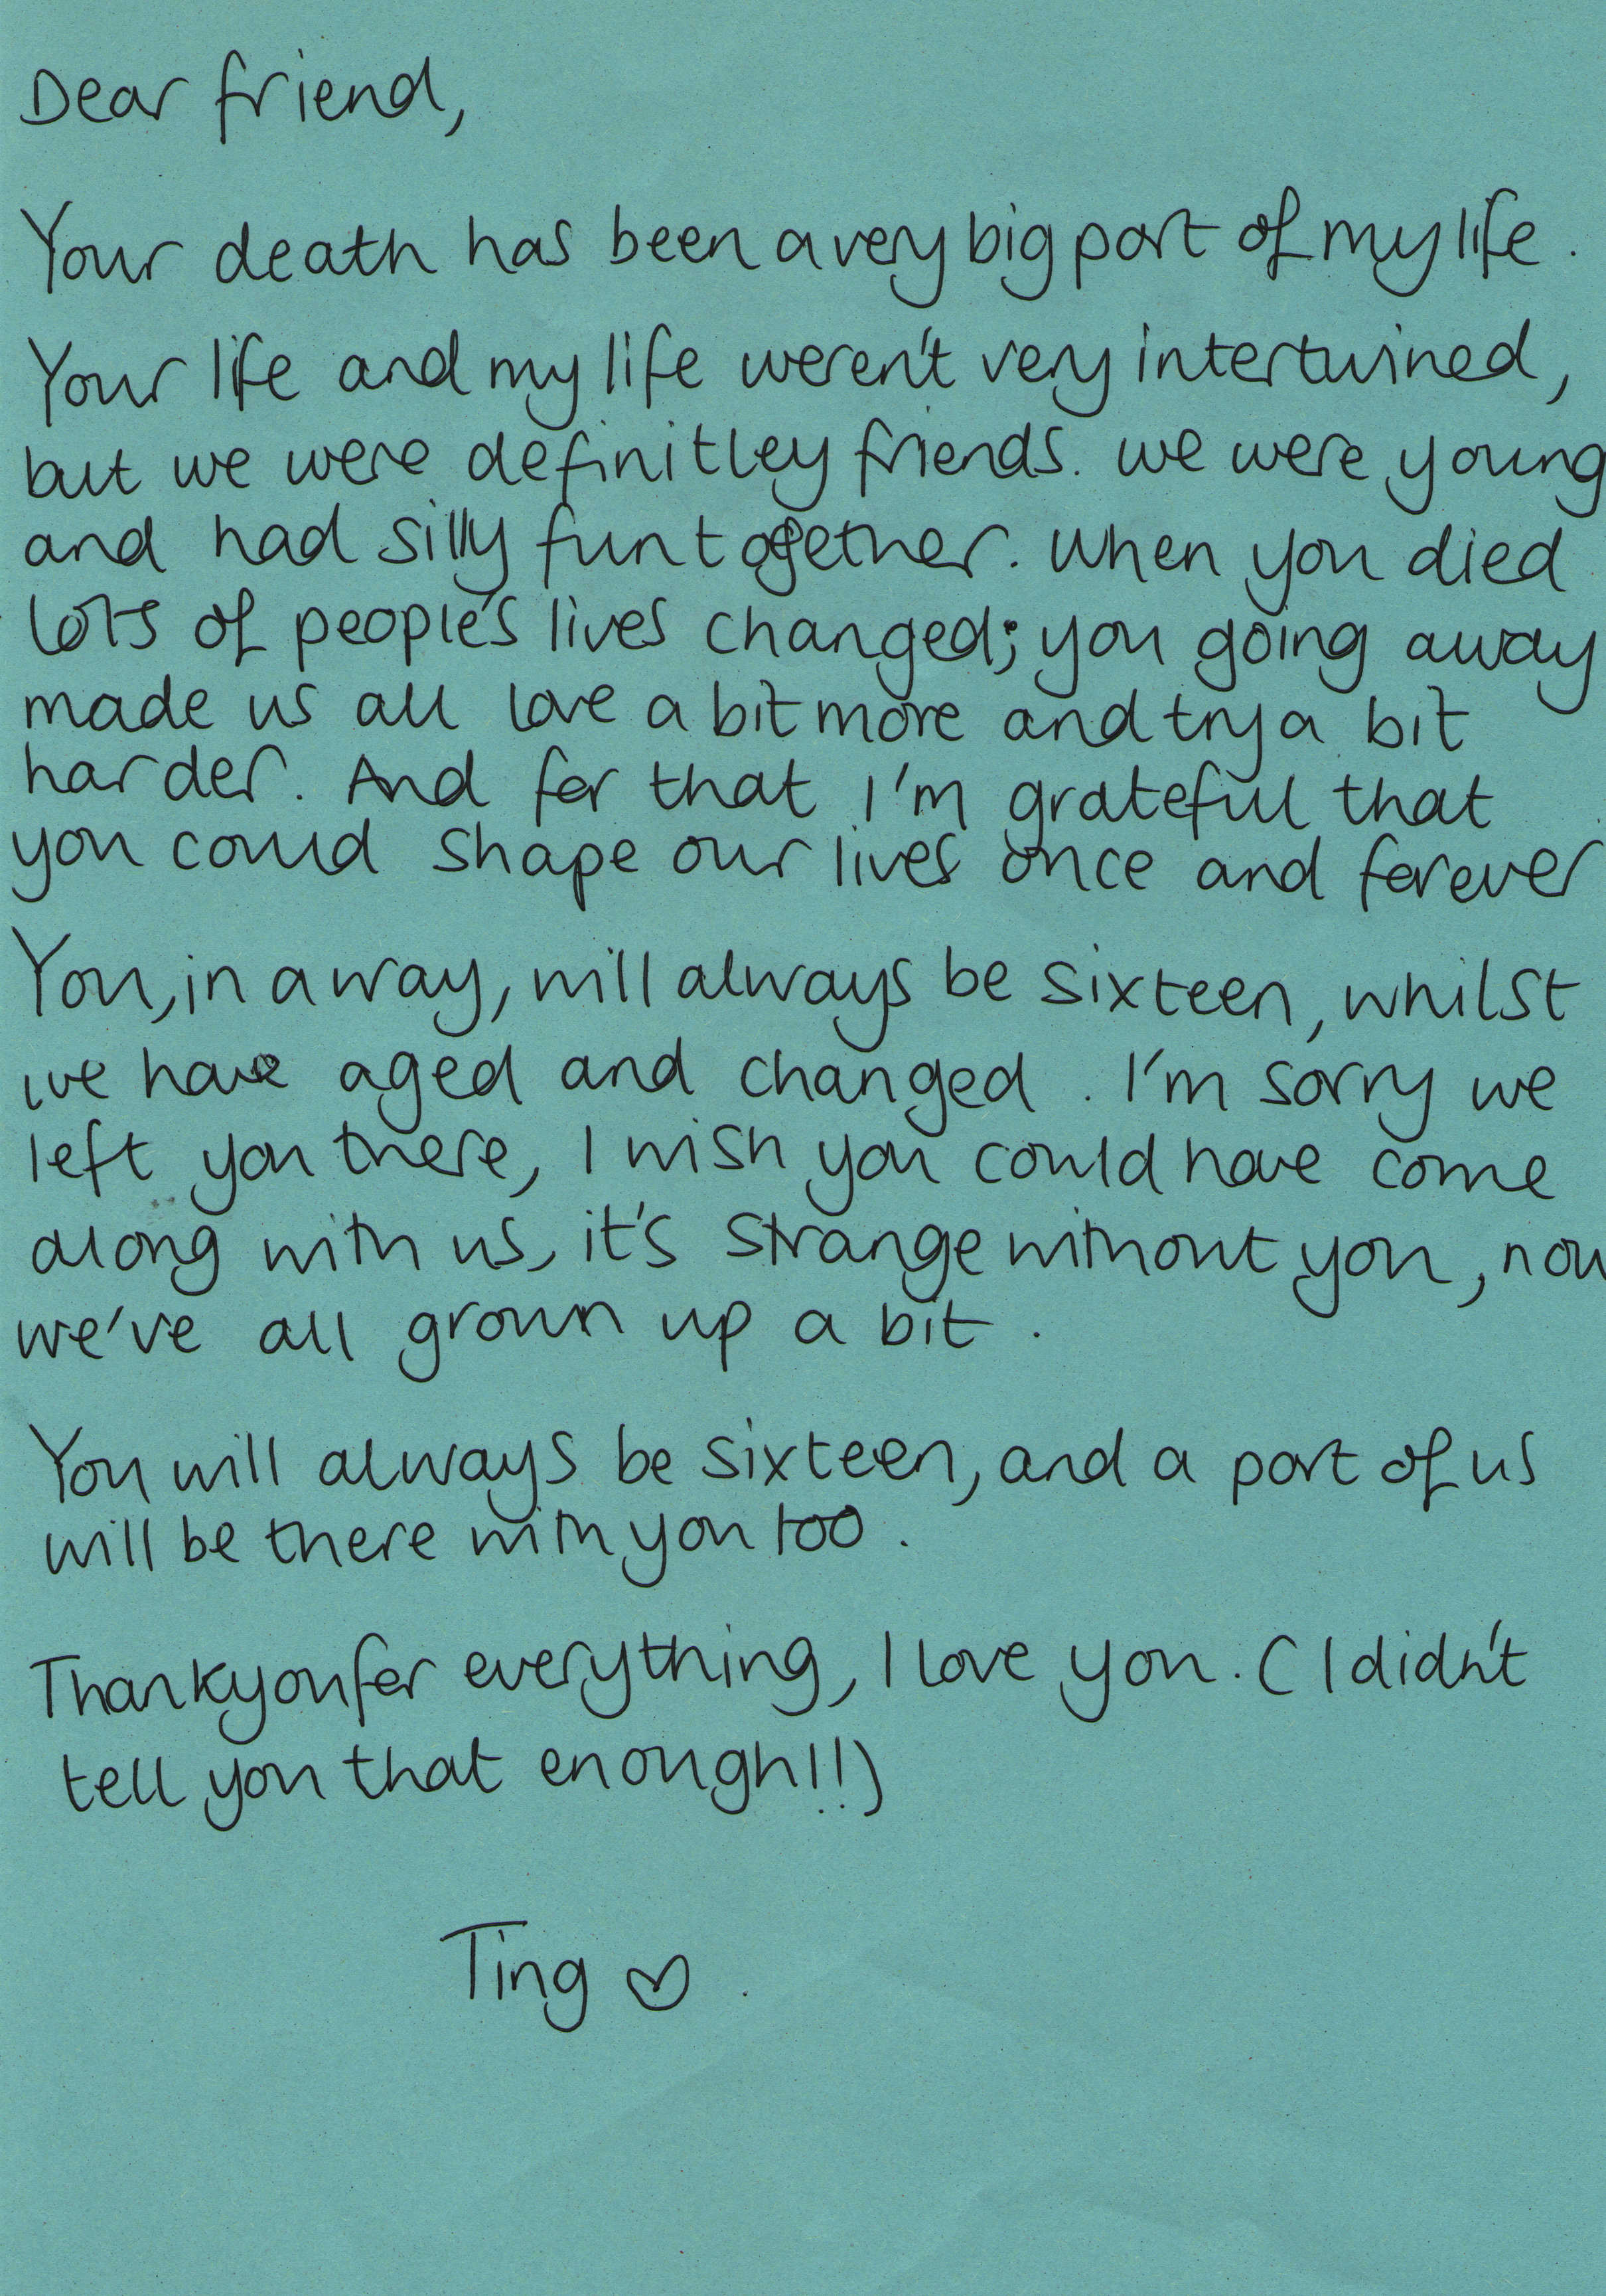 Dear friend,
Your death has been a very big part of my life.
Your life and my life weren't very intertwined,
but we were definitley friends. we were young
and had silly fun together. When you died
lots of people's lives changed; you going away
made us all love a bit more and try a bit
harder. And for that I'm grateful that
you could shape our lives once and forever
You, in a way, will always be sixteen, whilst
we have aged and changed. I'm sorry we
left you there, I wish you could have come
along with us, it's strange without you, now
we've all grown up a bit.
You will always be sixteen, and a part of us
will be there with you too.
Thankyou for everything, I love you. (I didn't
tell you that enough!!)
Ting ♡